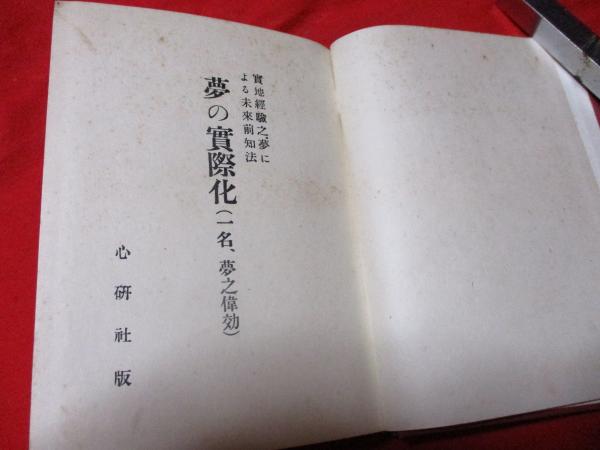 實地經驗之夢に
よる未來前知法
夢の實際化(一名、夢之偉効)
心研社版